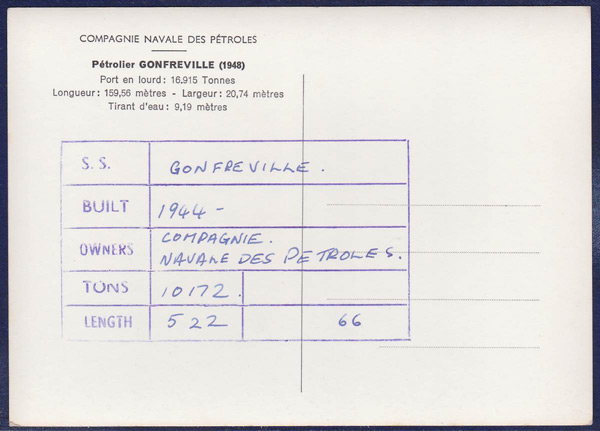 COMPAGNIE NAVALE DES PÉTROLES
Pétrolier GONFREVILLE (1948)
Port en lourd : 16.915 Tonnes
Longueur : 159,56 mètres - Largeur : 20,74 mètres
Tirant d'eau : 9,19 mètres
S. S. GONFREVILLE.
BUILT 1944 -
OWNERS COMPAGNIE.
NAVALE DES PETROLES.
TONS 10172.
LENGTH 522 66